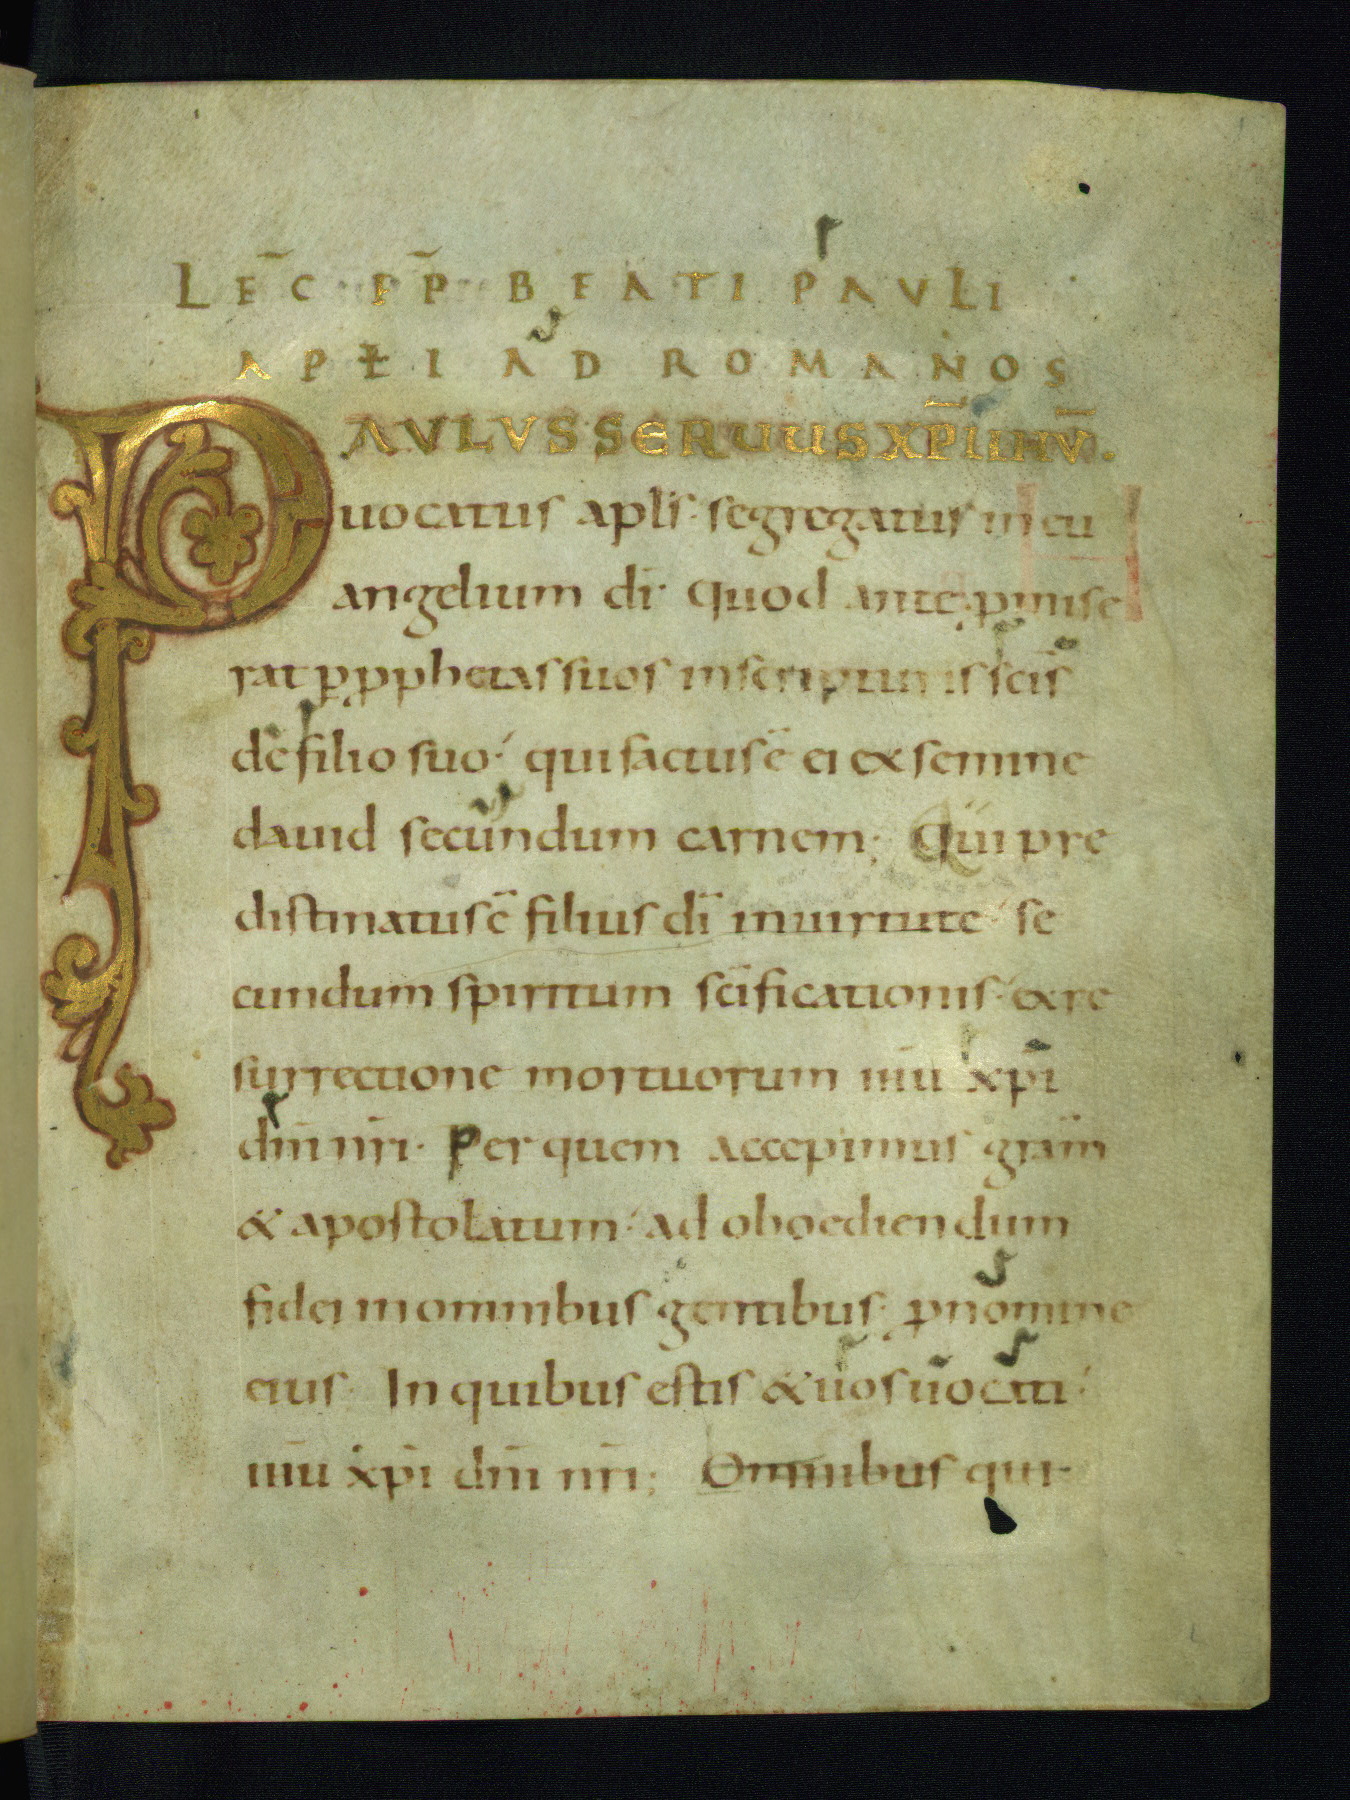 LEC̄ EP̄ BEATI PAVLI
APꝉI AD ROMANOS
PAVLVS SERUUS XPI IHV̄.
uocatus apls̄· segregatus in eu
angelium dī· Quod ante ꝓmise
rat ꝑ ꝓphetas suos in scripturis scīs
de filio suo· qui factus ē ei ex semine
dauid secundum carnem; Qui pre
distinatus ē filius dī in uirtute· se
cundum spiritum scīficationis· ex re
surrectione mortuorum ihū xp̄i
dnī nrī· Per quem accepimus gratiā̄m
& apostolatum· ad oboediendum
fidei in omnibus gentibus· ꝓ nomine
eius· In quibus estis & uos uocati·
ihū xp̄i dnī nrī; Omnibus qui